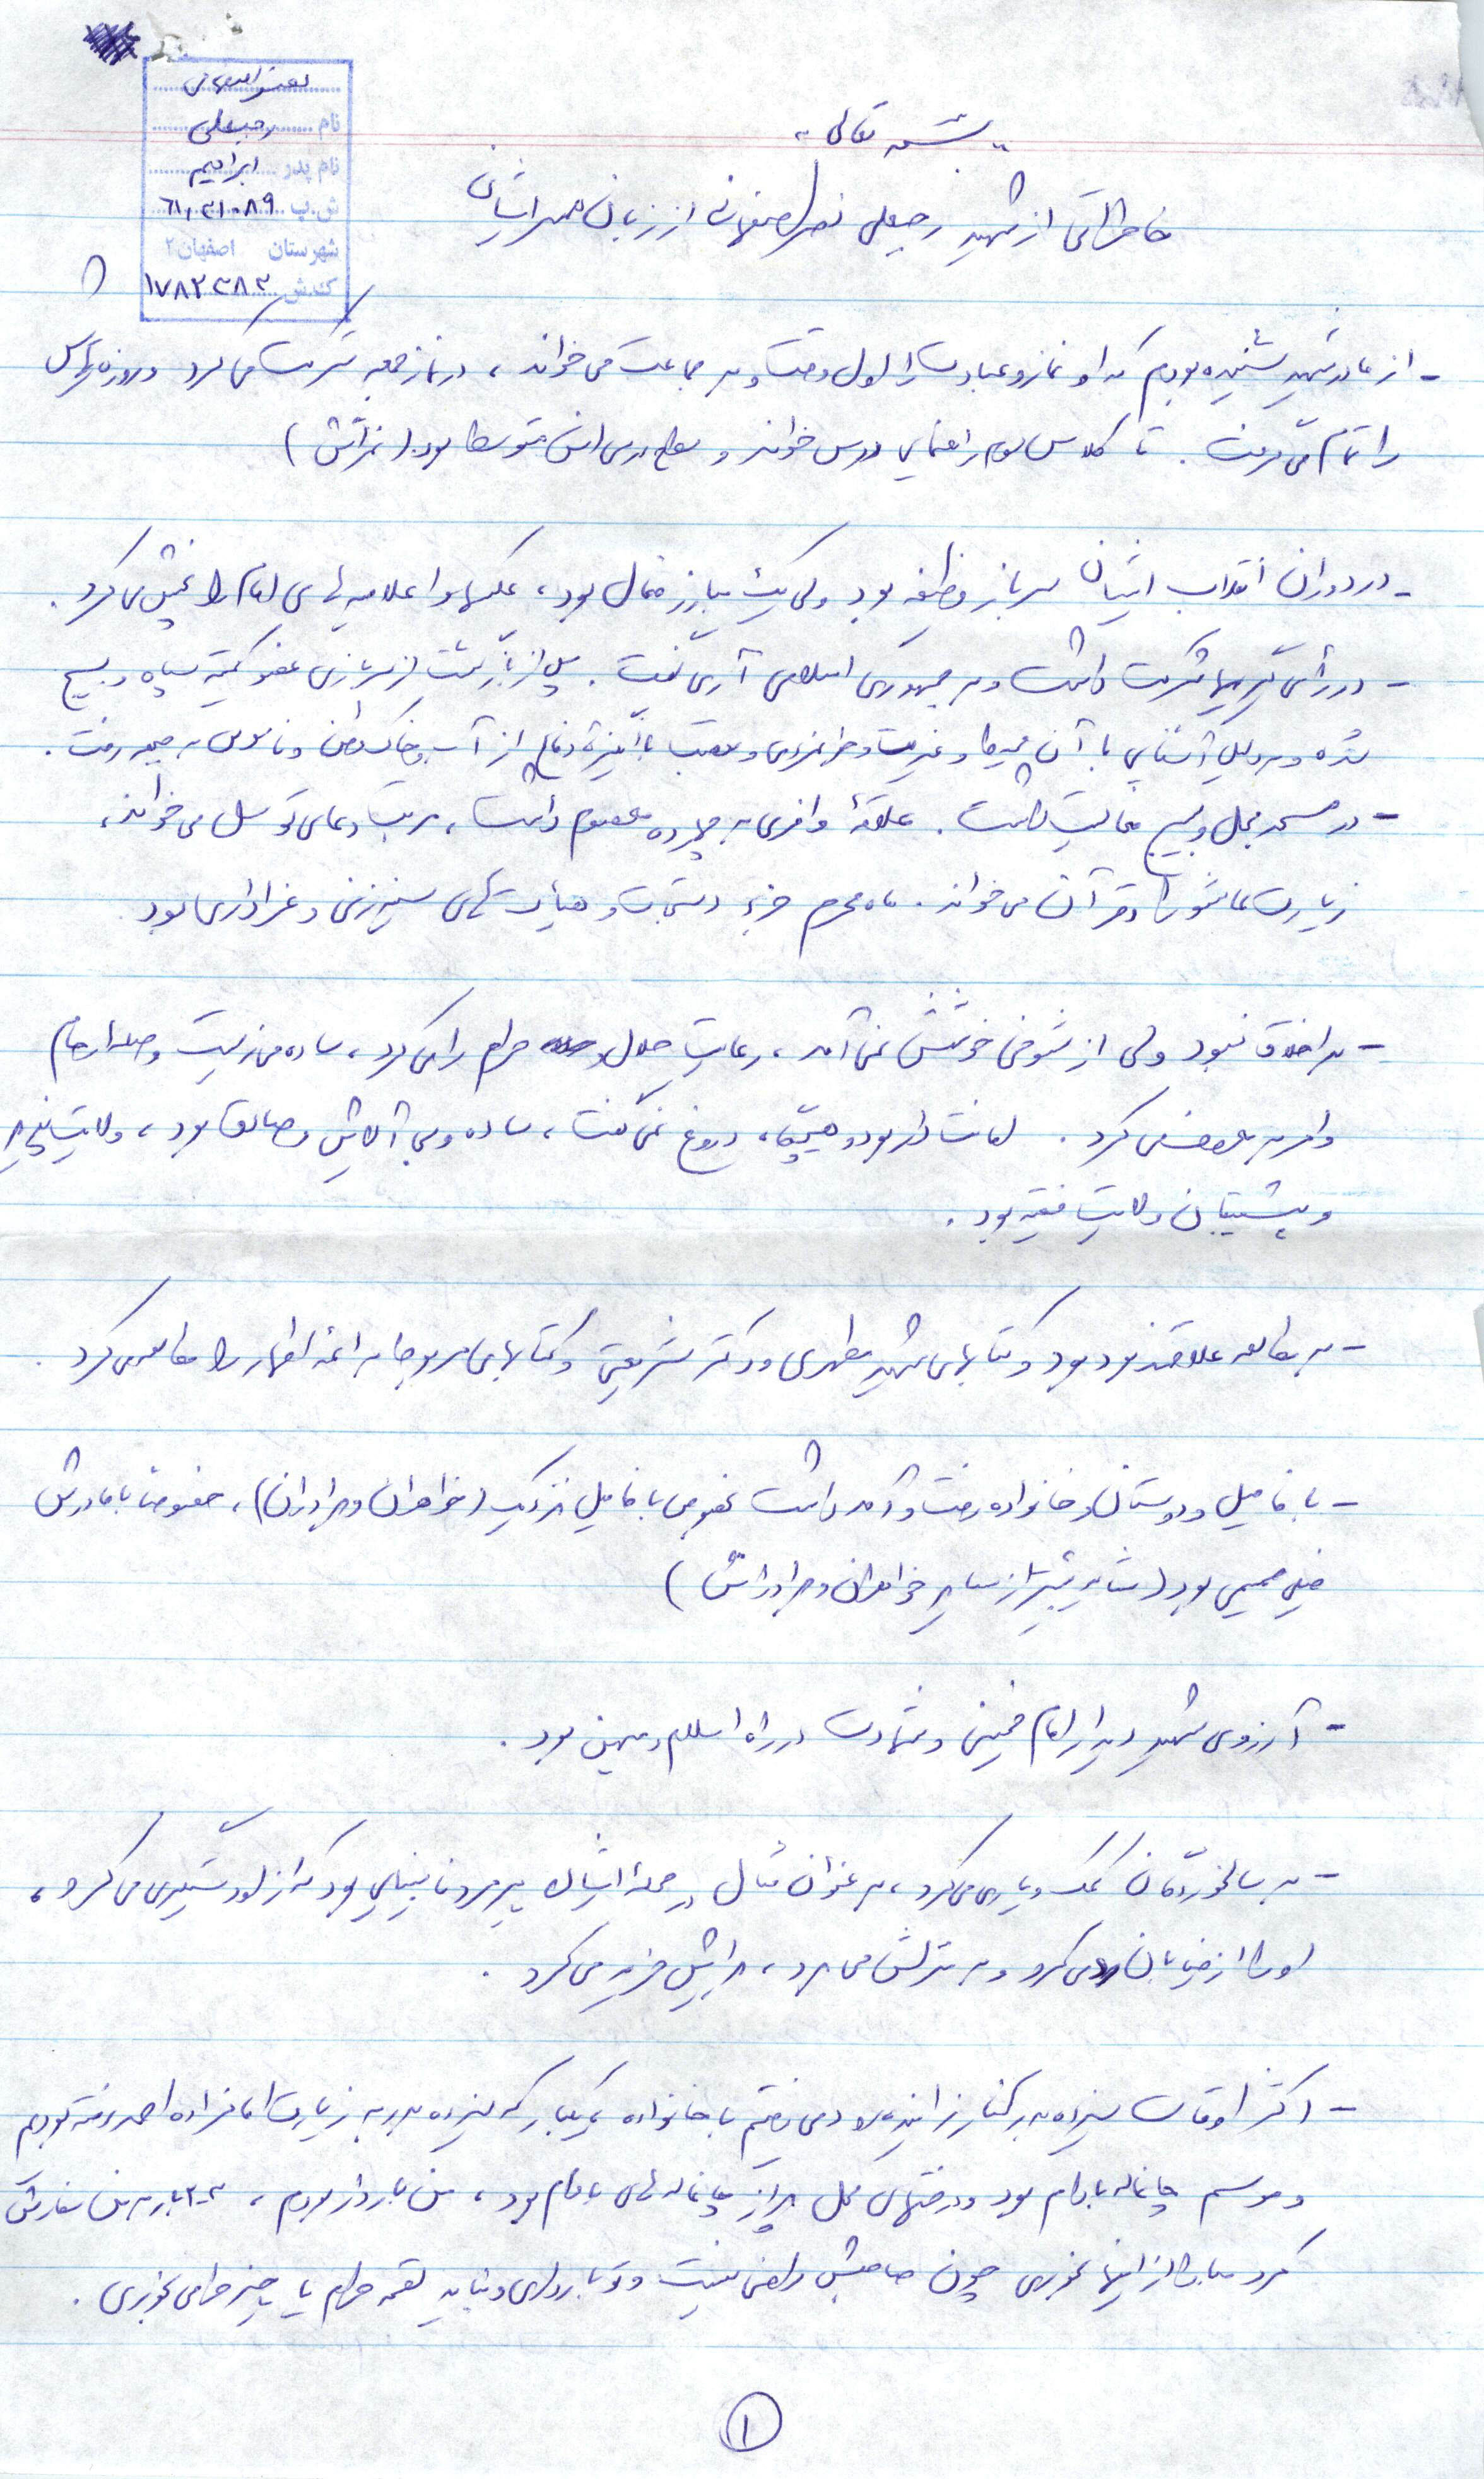 نصر اصفهانی
نام رجبعلی
نام پدر ابراهیم
ش.پ ۶۱,۳۱۰۸۹
شهرستان اصفهان ۲
کد.ش ۱۷۸۲۳۸۳
"بسمه تعالی"
خاطراتی از شهید رجبعلی نصر اصفهانی از زبان همسر ایشان
- از مادر شهید شنیده بودم که او نماز و عباداتش را اول وقت و به جماعت می خواند، در نماز جمعه شرکت می کرد و روزه هایش
را تمام می گرفت. تا کلاس سوم راهنمایی درس خواند و سطح درسی اش متوسط بود. (نمراتش)
- در دوران انقلاب ایشان سرباز وظیفه بود ولی یک مبارز فعال بود، عکسها و اعلامیه های امام را پخش می کرد.
- در رأی گیریها شرکت داشت و به جمهوری اسلامی آری گفت. پس از بازگشت از سربازی عضو کمیته سپاه و بسیج
شده و به دلیل آشنایی با آن محیط و غیرت و جوانمردی و با انگیزه دفاع از آب و خاک وطن و ناموس به جبهه رفت.
- در مسجد محل و بسیج فعالیت داشت. علاقهٔ وافری به چهارده معصوم داشت، مرتب دعای توسل می خواند،
زیارت عاشورا و قرآن می خواند. ماه محرم جزء دستجات و هیأت های سینه زنی و عزاداری بود.
- بد اخلاق نبود ولی از شوخی خوشش نمی آمد، رعایت حلال و حرام را می کرد، ساده می زیست و صله ارحام
و امر به معروف می کرد. امانت دار بود و هیچوقت دروغ نمی گفت، ساده و بی آلایش و صادق بود، ولایت پذیر
و پشتیبان ولایت فقیه بود.
- به مطالعه علاقمند بود و کتابهای شهید مطهری و دکتر شریعتی و کتابهای مربوط به ائمه اطهار را مطالعه می کرد.
- با فامیل و دوستان و خانواده رفت و آمد داشت بخصوص با فامیل نزدیک (خواهران و برادران)، خصوصاً با مادرش
خیلی صمیمی بود (شاید بیشتر از سایر خواهران و برادرانش)
- آرزوی شهید دیدار امام خمینی و شهادت در راه اسلام و میهن بود.
- به سالخوردگان کمک و یاری می کرد، به عنوان مثال در محلهٔ ایشان پیرمرد نابینایی بود که از او دستگیری می کرد،
او را از خیابان رد می کرد و به منزلش می برد، برایش خرید می کرد.
- اکثر اوقات سیزده بدر کنار زاینده رود می رفتیم با خانواده، یکبار که سیزده بدر به زیارت امامزاده احمد رفته بودیم
و موسم چاغاله بادام بود و درختهای محل پر از چاغاله های بادام بود، من باردار بودم، ۲-۳ بار به من سفارش
کرد مبادا از اینها بخوری چون صاحبش راضی نیست و تو بارداری و نباید لقمه حرام یا چیز حرامی بخوری.
۱